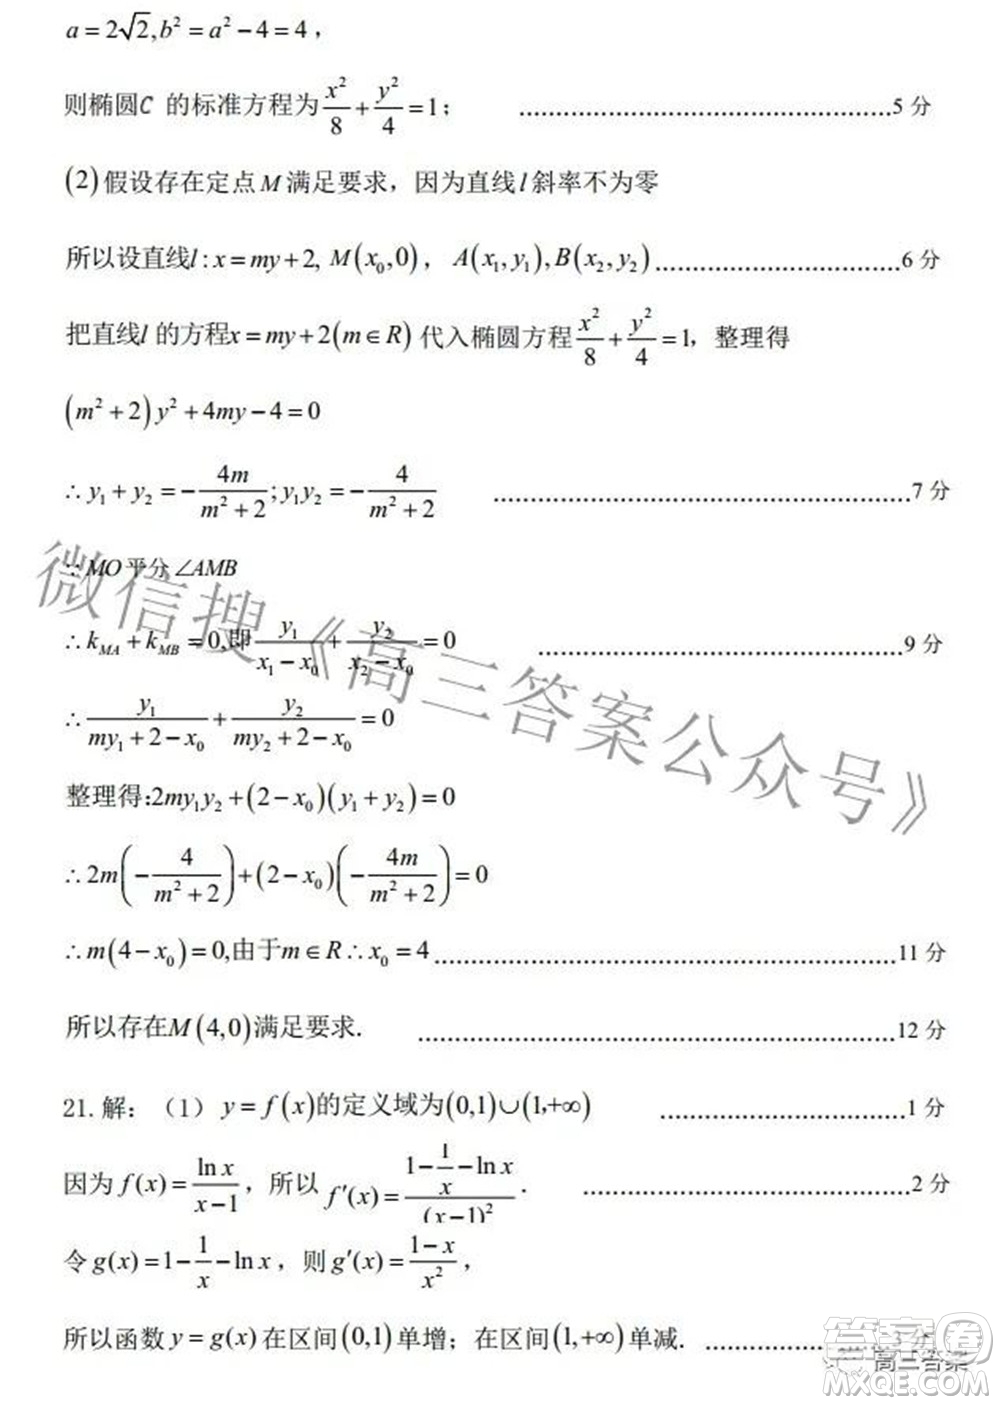 a=2√2,b²=a²−4=4，
则椭圆C 的标准方程为x²/8+y²/4=1；…………………………………………5 分
(2)假设存在定点M满足要求，因为直线l斜率不为零
所以设直线l:x=my+2, M(x₀,0)，A(x₁,y₁),B(x₂,y₂)……………………………6 分
把直线l 的方程x=my+2(m∈R)代入椭圆方程x²/8+y²/4=1，整理得
(m²+2)y²+4my−4=0
∴y₁+y₂=−4m/(m²+2);y₁y₂=−4/(m²+2) …………………………………………7 分
∵MO平分∠AMB
∴k_MA+k_MB=0,即y₁/(x₁−x₀)+y₂/(x₂−x₀)=0 …………………………………………9 分
∴y₁/(my₁+2−x₀)+y₂/(my₂+2−x₀)=0
整理得:2my₁y₂+(2−x₀)(y₁+y₂)=0
∴2m(−4/(m²+2))+(2−x₀)(−4m/(m²+2))=0
∴m(4−x₀)=0,由于m∈R∴x₀=4…………………………………………11 分
所以存在M(4,0)满足要求. …………………………………………12 分
21.解：（1）y=f(x)的定义域为(0,1)∪(1,+∞) ……………………………1 分
因为f(x)=lnx/(x−1)，所以f′(x)=(1−1/x−lnx)/(x−1)². …………………………………2 分
令g(x)=1−1/x−lnx，则g′(x)=(1−x)/x²，
所以函数y=g(x)在区间(0,1)单增；在区间(1,+∞)单减. ……………………3 分
微信搜《高三答案公众号》
答案圈
高三答案
MXQE.COM